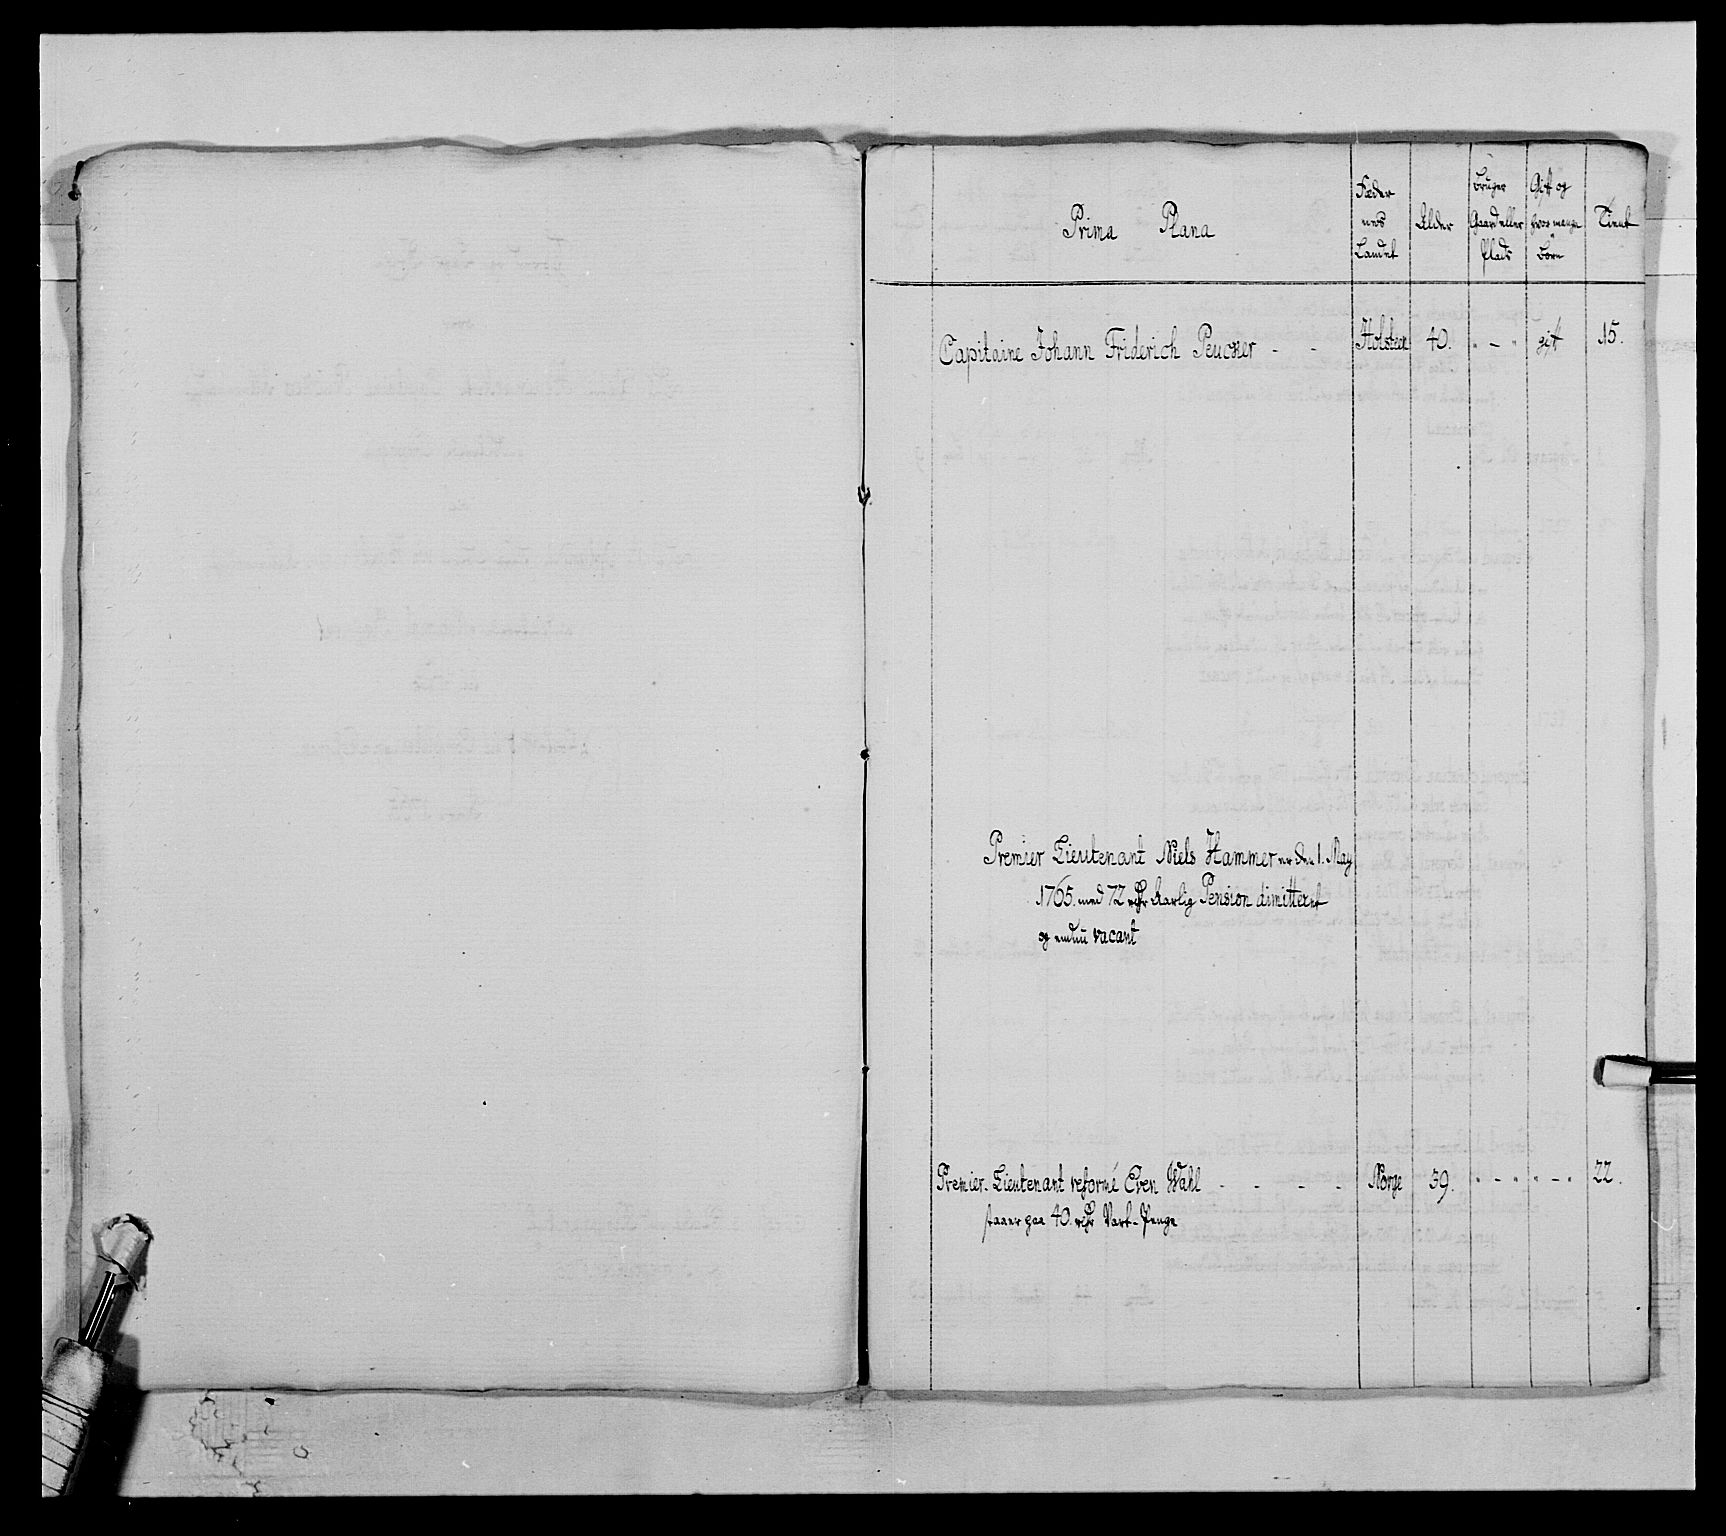 Prima Plana
Fæder
nes
Landet
Alder
bruger
Gaard eller
Plads
Gift og
hvor mange
børn
Tient
Capitaine Johann Friderich Peucker - - Holsteen 40. " - " gift 15.
Premier Lieutenant Niels Hammer er den 1. May
1765. med 72 rdr Aarlig Pension dimitteret
og endnu vacant
Premier-Lieutenant reformé Even Wahl - - - - Norge 39. " - " " - " 22.
staaer paa 40. rdr Vart-Penge